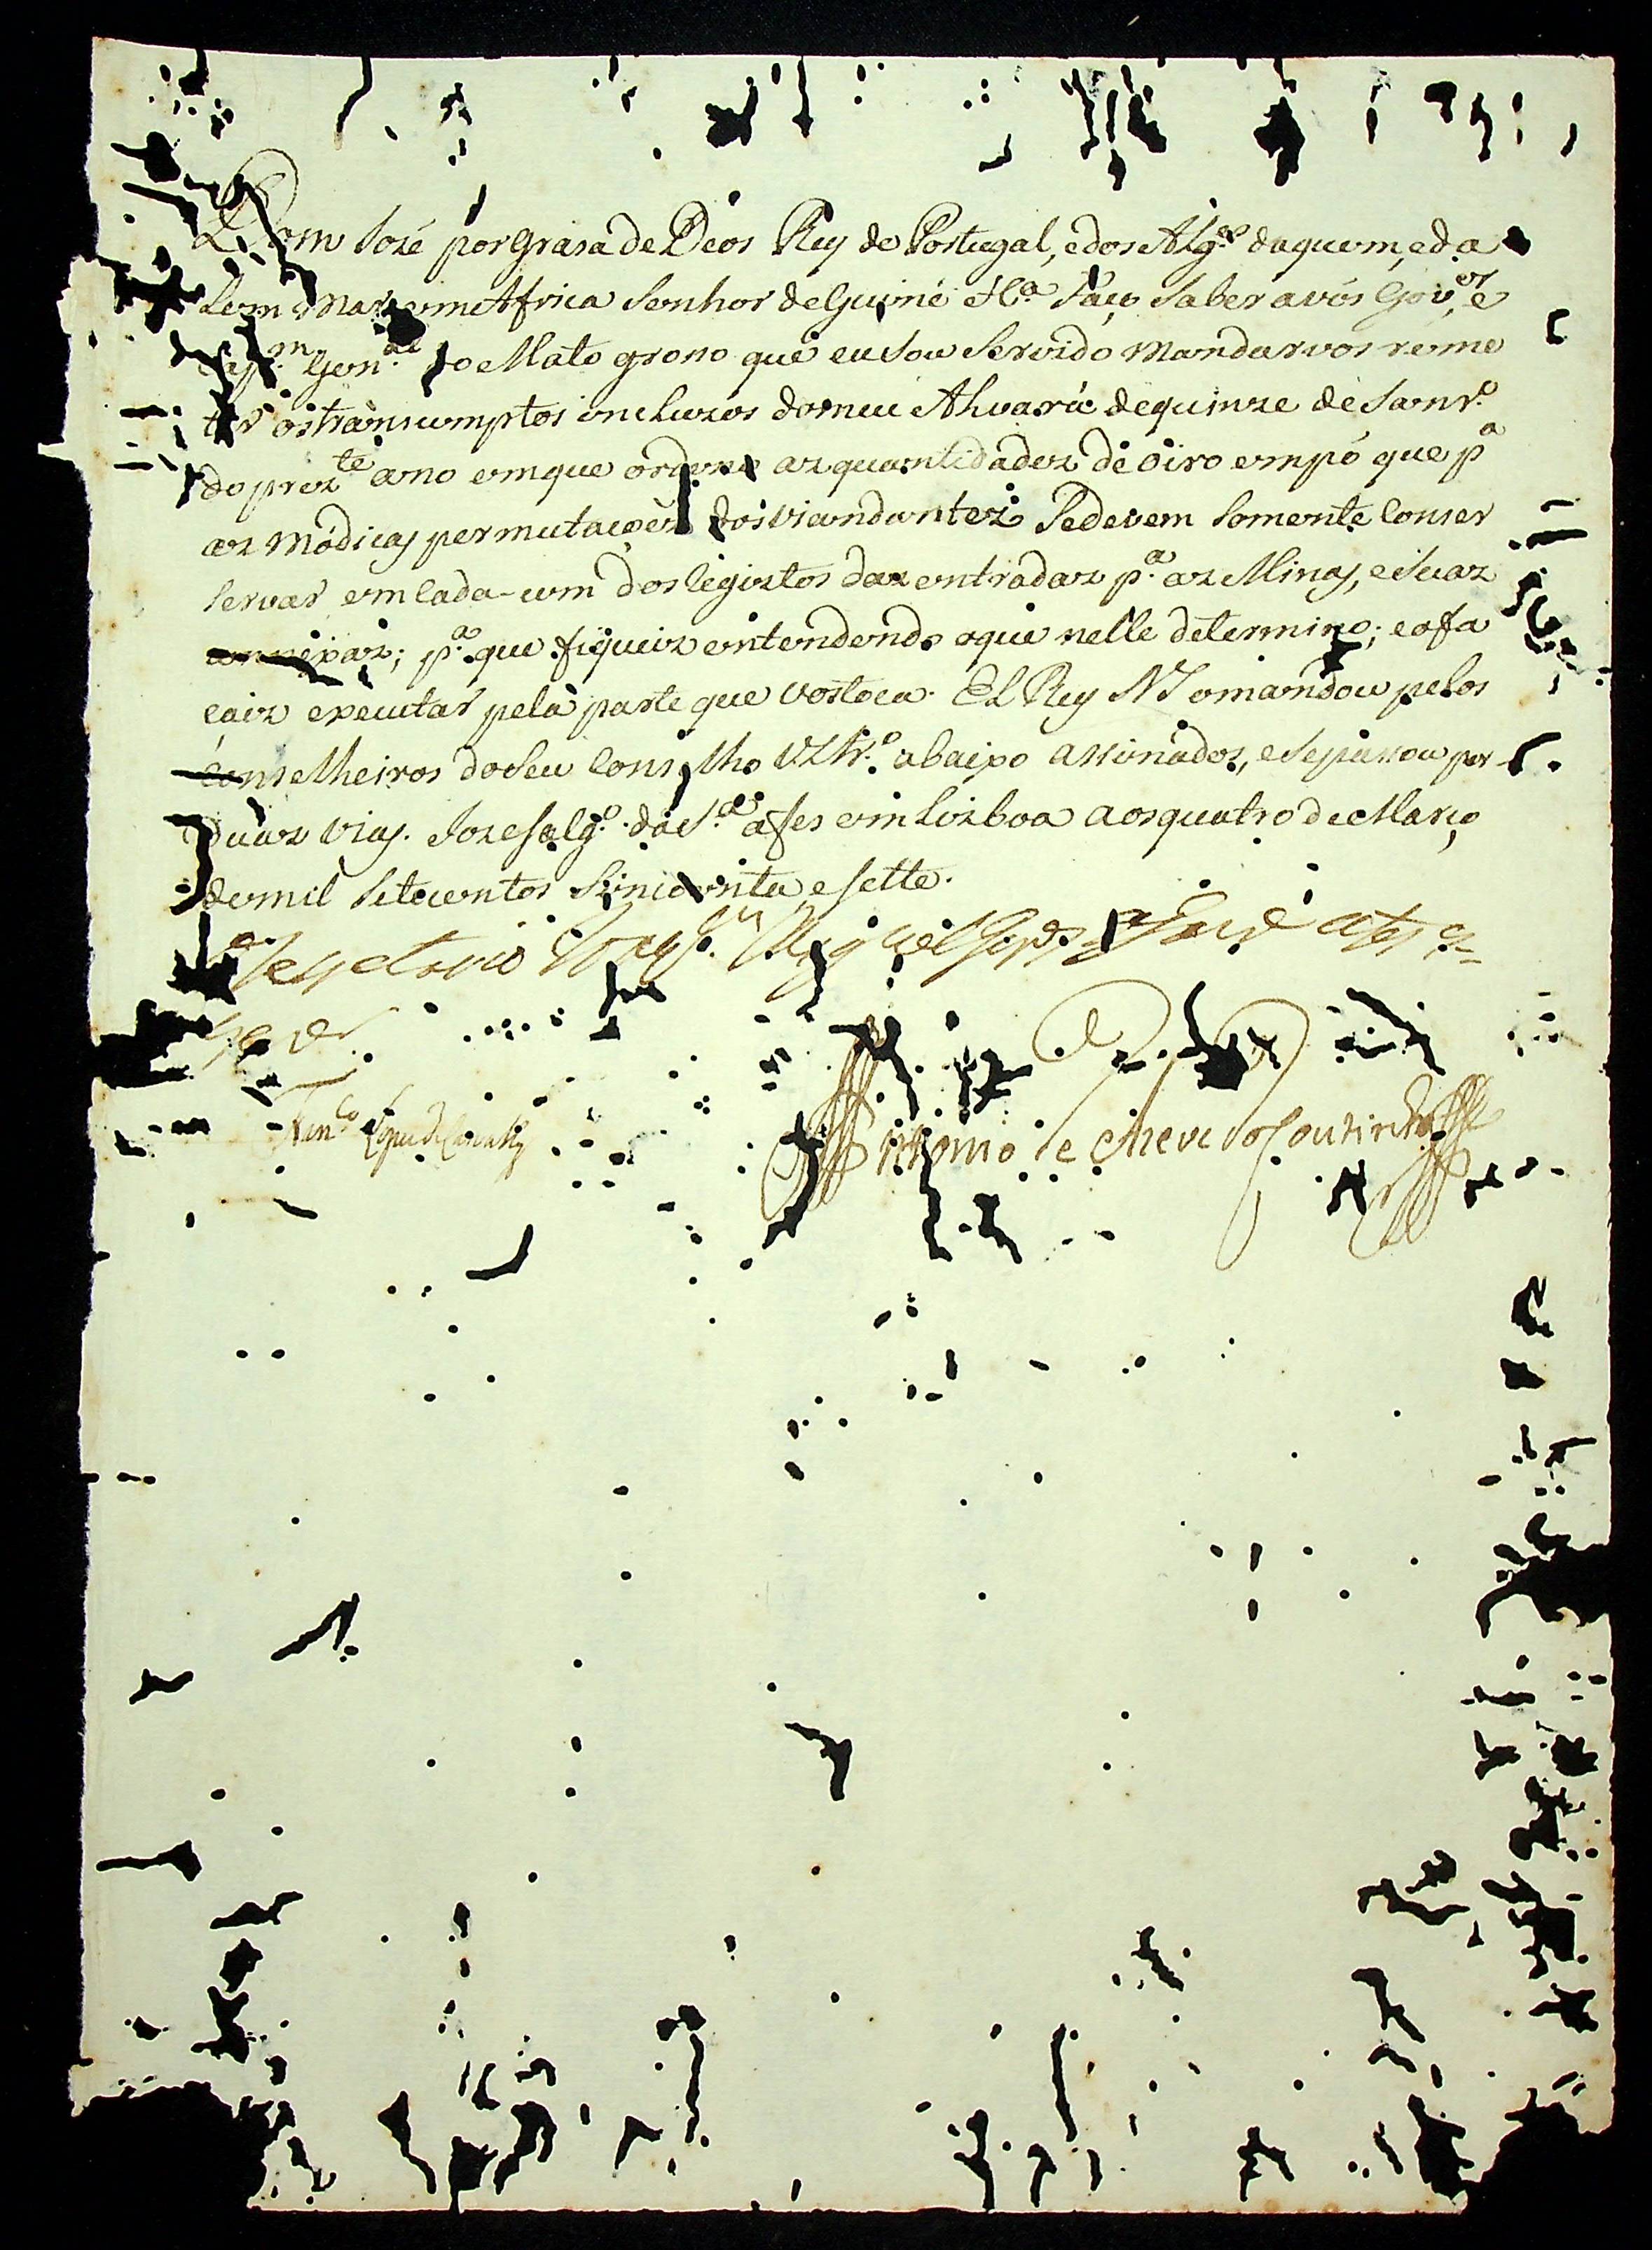 Dom Jozé por grasa de Deos Rey de Portugal, e dos Alg.es daquem, e da
lem Mar em Africa Senhor de Guiné &c.a Faço saber a vós Gov.or e
Cap.m Gen.al do Mato groso que eu sou servido mandarvos reme
ter os transcumptos incluzos do meu Alvará de quinze de Janr.o
do prez.te ano em que ordeno as quantidades de oiro em pó que p.a
as módicas permutaçoes dos viandantes se devem somente conser
servar em cada um dos Registos das entradas p.a as Minas, e suas
annexas; p.a que fiqueis entendendo o que nelle determino; e o fa
çais executar pela parte que vos toca. El Rey N S o mandou pelos
conselheiros do seu Conselho Ultr.o abaixo assinados, e se passou por
duas vias. Joze Salg.o da S.a a fes em Lisboa aos quatro de Março
de mil setecentos sincoenta e sette.
O Secretario Joaq.m Miguel Lopes de Lavre a fez es-
crever
Fran.co Lopes de Carvalho
Antonio de Azevedo Coutinho